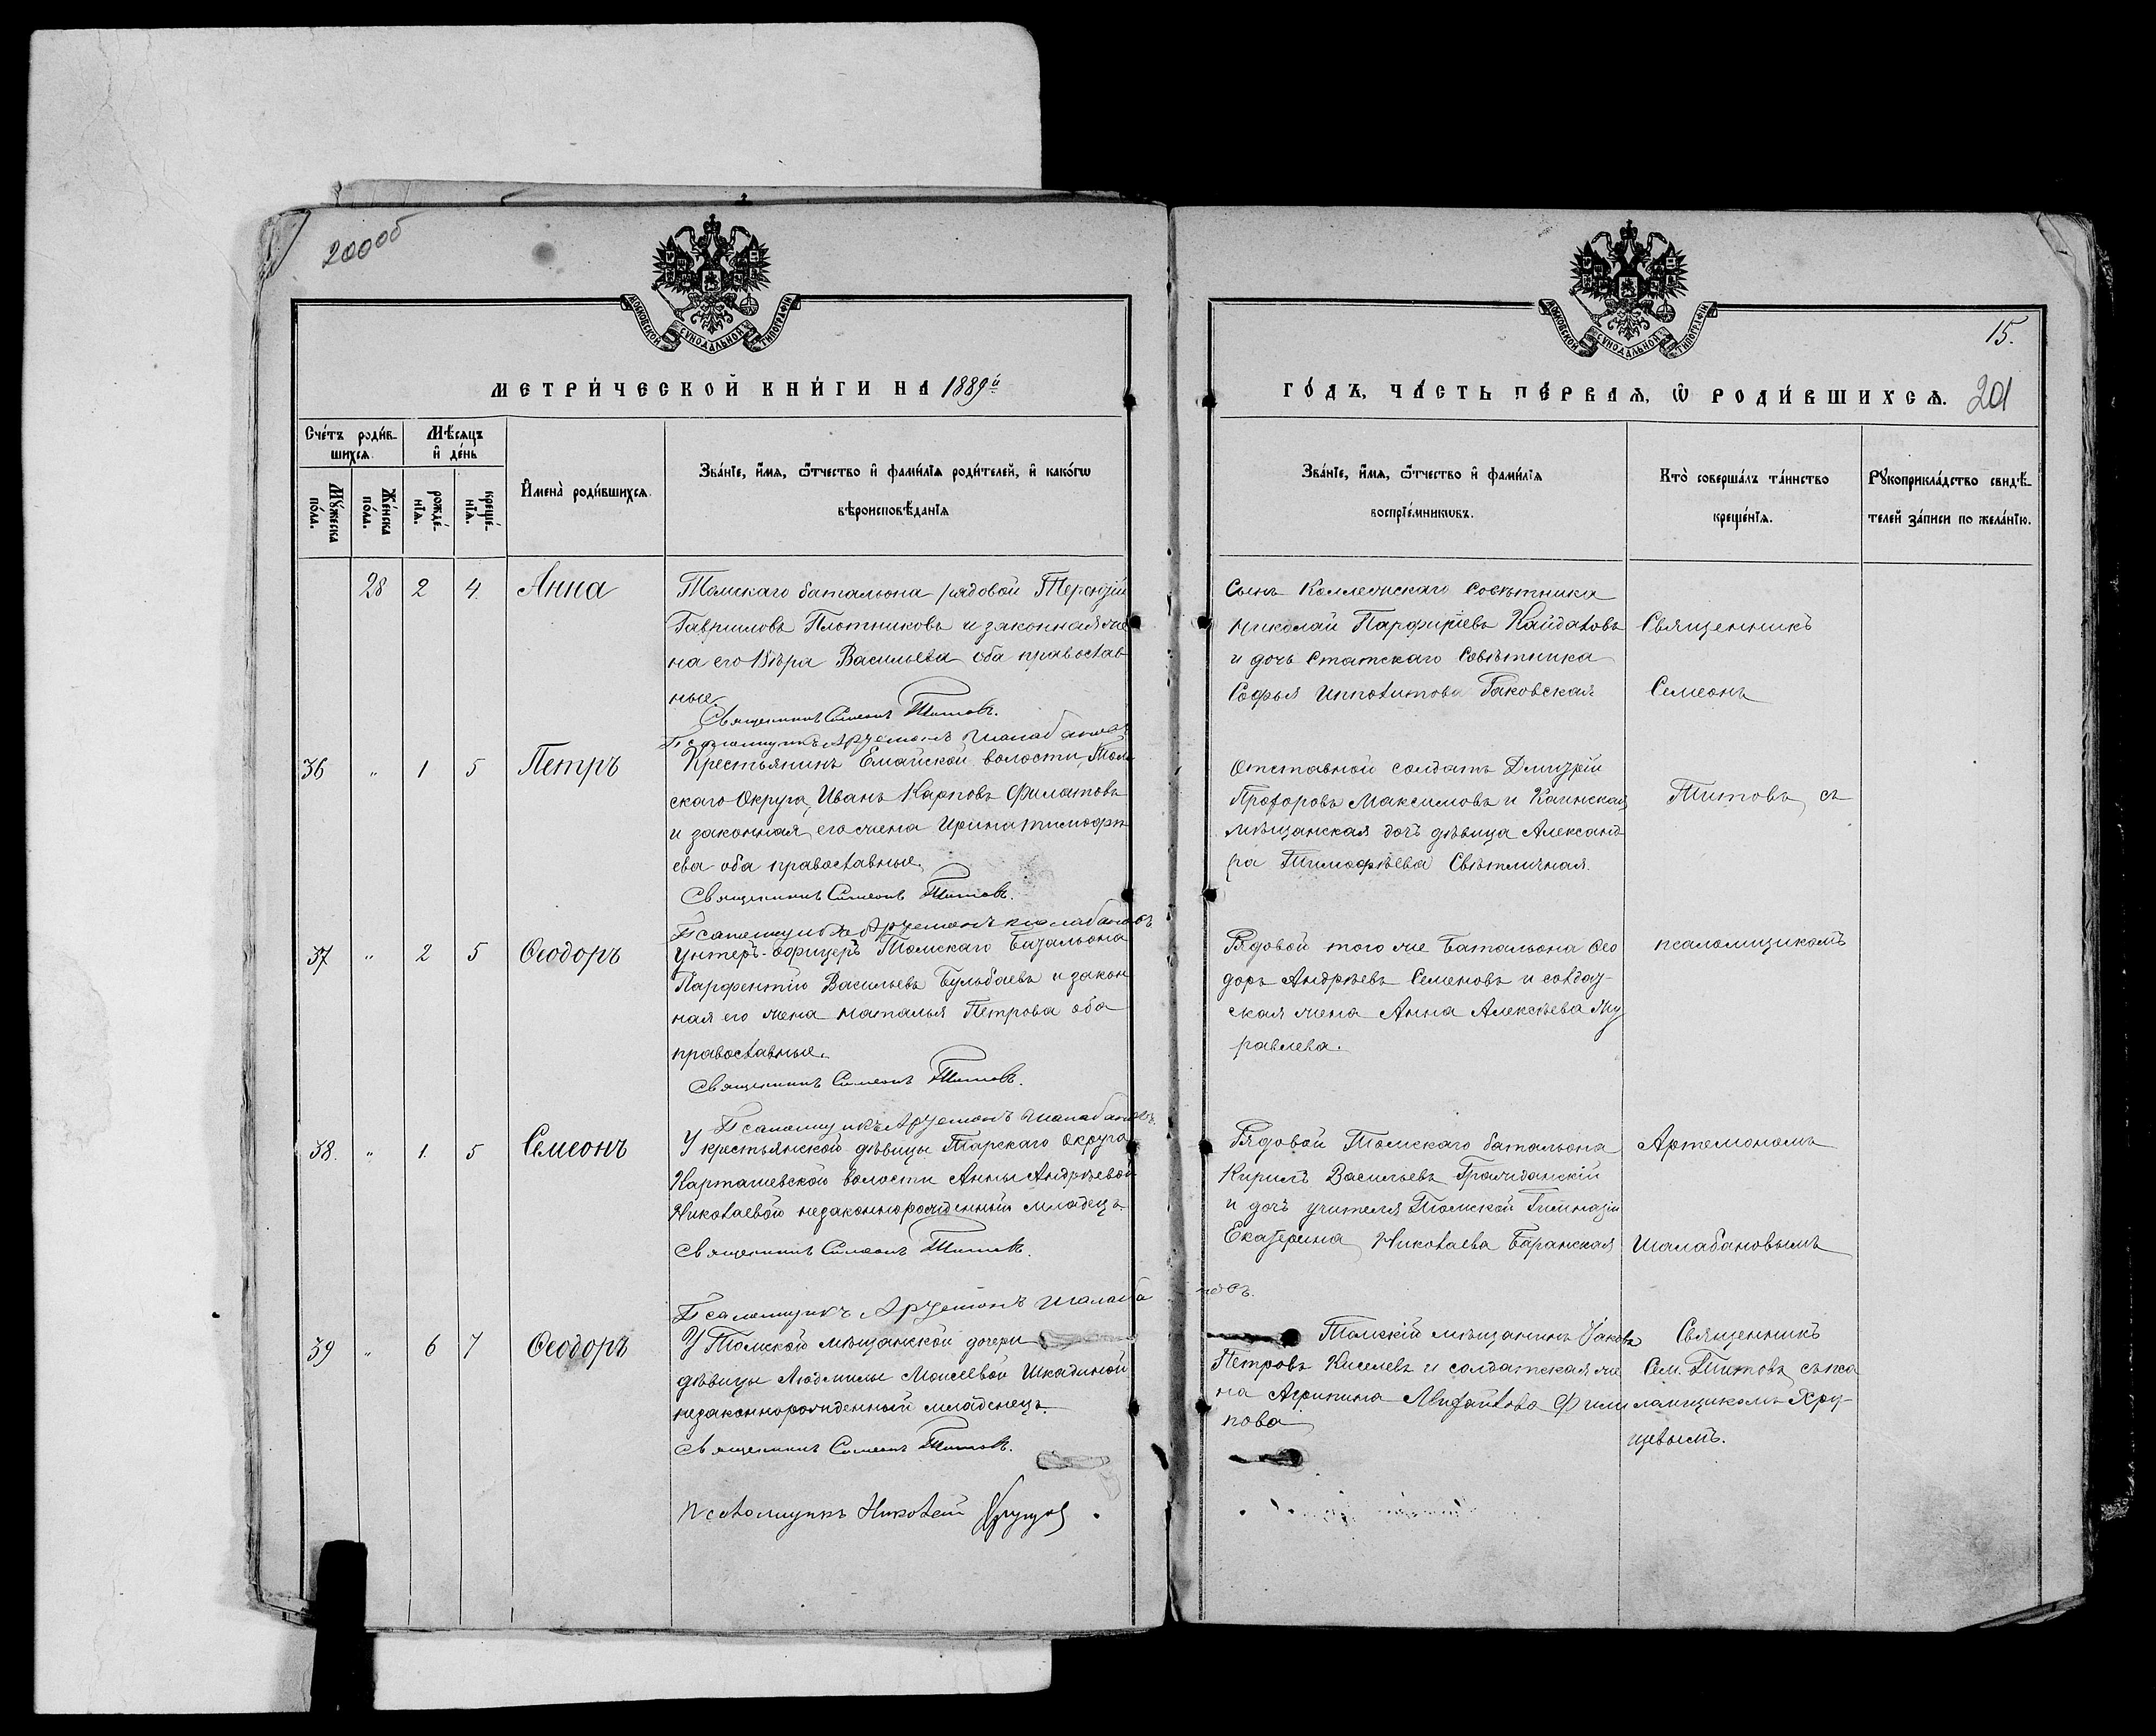 200об
МОСКОВСКОЙ СѴНОДАЛЬНОЙ ТИПОГРАФІИ
МЕТРИ́ЧЕСКОЙ КНИ́ГИ НА 1889й
Сче́тъ роди́в-
шихсѧ.
Мѣ́сѧцъ
и҆ де́нь
Мꙋ́жеска
по́ла.
Же́нска
по́ла.
рожде́-
нїѧ.
креще́-
нїѧ.
И҆мена̀ роди́вшихсѧ.
Зва́нїе, и҆́мѧ, ѻ҆́тчество и҆ фами́лїѧ роди́телей, и҆ како́гѡ
вѣроисповѣ́данїѧ
28 2 4. Анна
Томскаго батальона рядовой Терентій
Гавриловъ Плотниковъ и законная же
на его Вѣра Васильева оба православ
ные.
Священникъ Симеонъ Титовъ.
Псаломщикъ Артемонъ Шалабановъ
36 " 1 5 Петръ
Крестьянинъ Елгайской волости, Том
скаго Округа, Иванъ Карповъ Филатовъ
и законная его жена Ирина Тимофѣ
ева оба православные.
Священникъ Симеонъ Титовъ.
Псаломщикъ Артемонъ Шалабановъ
37 " 2 5 Ѳеодоръ
Унтеръ-Офицеръ Томскаго Батальона
Парфентій Васильевъ Бульбаевъ и закон
ная его жена Наталья Петрова оба
православные.
Священникъ Симеонъ Титовъ.
Псаломщикъ Артемонъ Шалабановъ.
38. " 1. 5 Семеонъ
У крестьянской дѣвицы Тарскаго Округа
Карташевской волости Анны Андрѣевой
Николаевой незаконнорожденный младецъ.
Священникъ Симеонъ Титовъ.
Псаломщикъ Артемонъ Шалаба
39 " 6 7 Ѳеодоръ
У Томской мѣщанской дочери
дѣвицы Людмилы Моисеевой Шкадиной
незаконнорожденный младенецъ.
Священникъ Симеонъ Титовъ.
Псаломщикъ Николай Хрущов.
МОСКОВСКОЙ СѴНОДАЛЬНОЙ ТИПОГРАФІИ
15.
ГО́ДЪ, ЧА́СТЬ ПЕ́РВАѦ, Ѡ҆ РОДИ́ВШИХСѦ. 201
Зва́нїе, и҆́мѧ, ѻ҆́тчество и҆ фами́лїѧ
воспрїе́мникѡвъ.
Кто̀ соверша́лъ та́инство
креще́нїѧ.
Рꙋкоприкла́дство свидѣ́-
телей за́писи по жела́нїю.
Сынъ Коллежскаго Совѣтника
Николай Парфиріевъ Кайдаловъ
и дочь Статскаго Совѣтника
Софья Ипполитова Гаковская
Священникъ
Семеонъ
Отставной солдатъ Дмитрій
Прохоровъ Максимовъ и Каинская
мѣщанская дочь дѣвица Александ
ра Тимофѣева Свѣтличная.
Титовъ съ
Рядовой того же Батальона Ѳео
доръ Андрѣевъ Семеновъ и солдат-
ская жена Анна Алексѣева Му
равлева.
псаломщикомъ
Рядовой Томскаго батальона
Кирилъ Васильевъ Гражданскій
и дочь учителя Томской Гимназіи
Екатерина Николаева Баранская
Артемономъ
Шалабановымъ
новъ.
Томскій мѣщанинъ Яковъ
Петровъ Киселевъ и солдатская же
на Агрипина Михайлова Фили
пова
Священникъ
Сем. Титовъ съ пса
ломщикомъ Хру-
щевымъ.